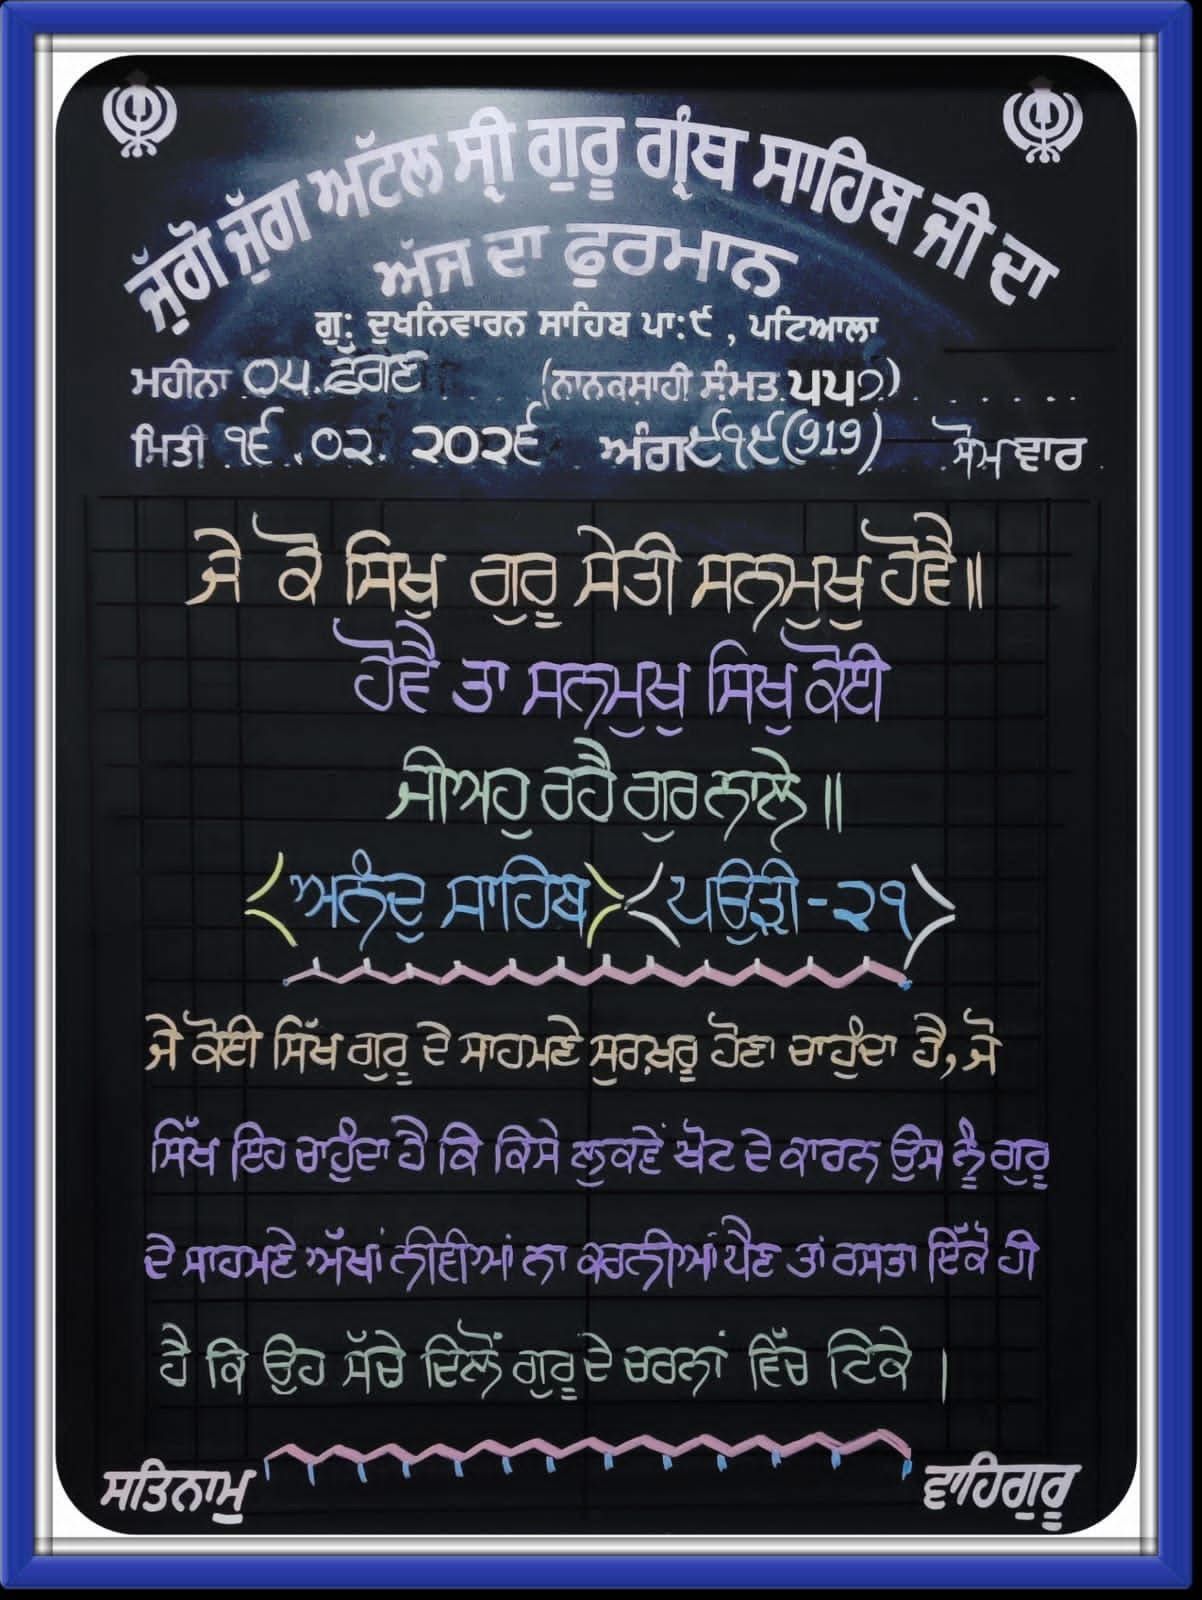 ਜੁੱਗੋ ਜੁੱਗ ਅੱਟਲ ਸ੍ਰੀ ਗੁਰੂ ਗ੍ਰੰਥ ਸਾਹਿਬ ਜੀ ਦਾ
ਅੱਜ ਦਾ ਫੁਰਮਾਨ
ਗੁ: ਦੂਖਨਿਵਾਰਨ ਸਾਹਿਬ ਪਾ:੯ , ਪਟਿਆਲਾ
ਮਹੀਨਾ ੦੫.ਫੱਗਣ (ਨਾਨਕਸ਼ਾਹੀ ਸੰਮਤ ੫੫੭)
ਮਿਤੀ ੧੬.੦੨.੨੦੨੬ ਅੰਗ ੯੧੯(919) ਸੋਮ ਵਾਰ
ਜੇ ਕੋ ਸਿਖੁ ਗੁਰੂ ਸੇਤੀ ਸਨਮੁਖੁ ਹੋਵੈ॥
ਹੋਵੈ ਤਾ ਸਨਮੁਖੁ ਸਿਖੁ ਕੋਈ
ਜੀਅਹੁ ਰਹੈ ਗੁਰ ਨਾਲੇ॥
<ਅਨੰਦੁ ਸਾਹਿਬ> <ਪਉੜੀ-੨੧>
ਜੇ ਕੋਈ ਸਿੱਖ ਗੁਰੂ ਦੇ ਸਾਹਮਣੇ ਸੁਰਖ਼ਰੂ ਹੋਣਾ ਚਾਹੁੰਦਾ ਹੈ, ਜੋ
ਸਿੱਖ ਇਹ ਚਾਹੁੰਦਾ ਹੈ ਕਿ ਕਿਸੇ ਲੁਕਵੇਂ ਖੋਟ ਦੇ ਕਾਰਨ ਉਸ ਨੂੰ ਗੁਰੂ
ਦੇ ਸਾਹਮਣੇ ਅੱਖਾਂ ਨੀਵੀਆਂ ਨਾ ਕਰਨੀਆਂ ਪੈਣ ਤਾਂ ਰਸਤਾ ਇੱਕੋ ਹੀ
ਹੈ ਕਿ ਉਹ ਸੱਚੇ ਦਿਲੋਂ ਗੁਰੂ ਦੇ ਚਰਨਾਂ ਵਿੱਚ ਟਿਕੇ ।
ਸਤਿਨਾਮੁ ਵਾਹਿਗੁਰੂ